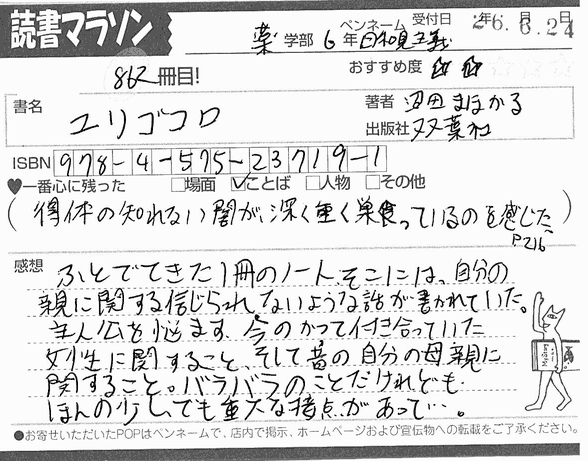 読書マラソン
薬学部 6年 ペンネーム 日和見主義 受付日 26.6.24
862冊目! おすすめ度
書名 ユリゴコロ
著者 沼田まほかる
出版社 双葉社
ISBN 978-4-575-23719-1
♥一番心に残った □場面 ☑ことば □人物 □その他
(得体の知れない闇が、深く重く巣食っているのを感じた)
P216
感想 ふとでてきた1冊のノート、そこには、自分の
親に関する信じられないような話が書かれていた。
主人公を悩ます、今のかつて付き合っていた
女性に関すること、そして昔の自分の母親に
関すること。バラバラのことだけれども
ほんの少しでも重大な接点があって…。
●お寄せいただいたPOPはペンネームで、店内で掲示、ホームページおよび宣伝物への転載をご了承ください。